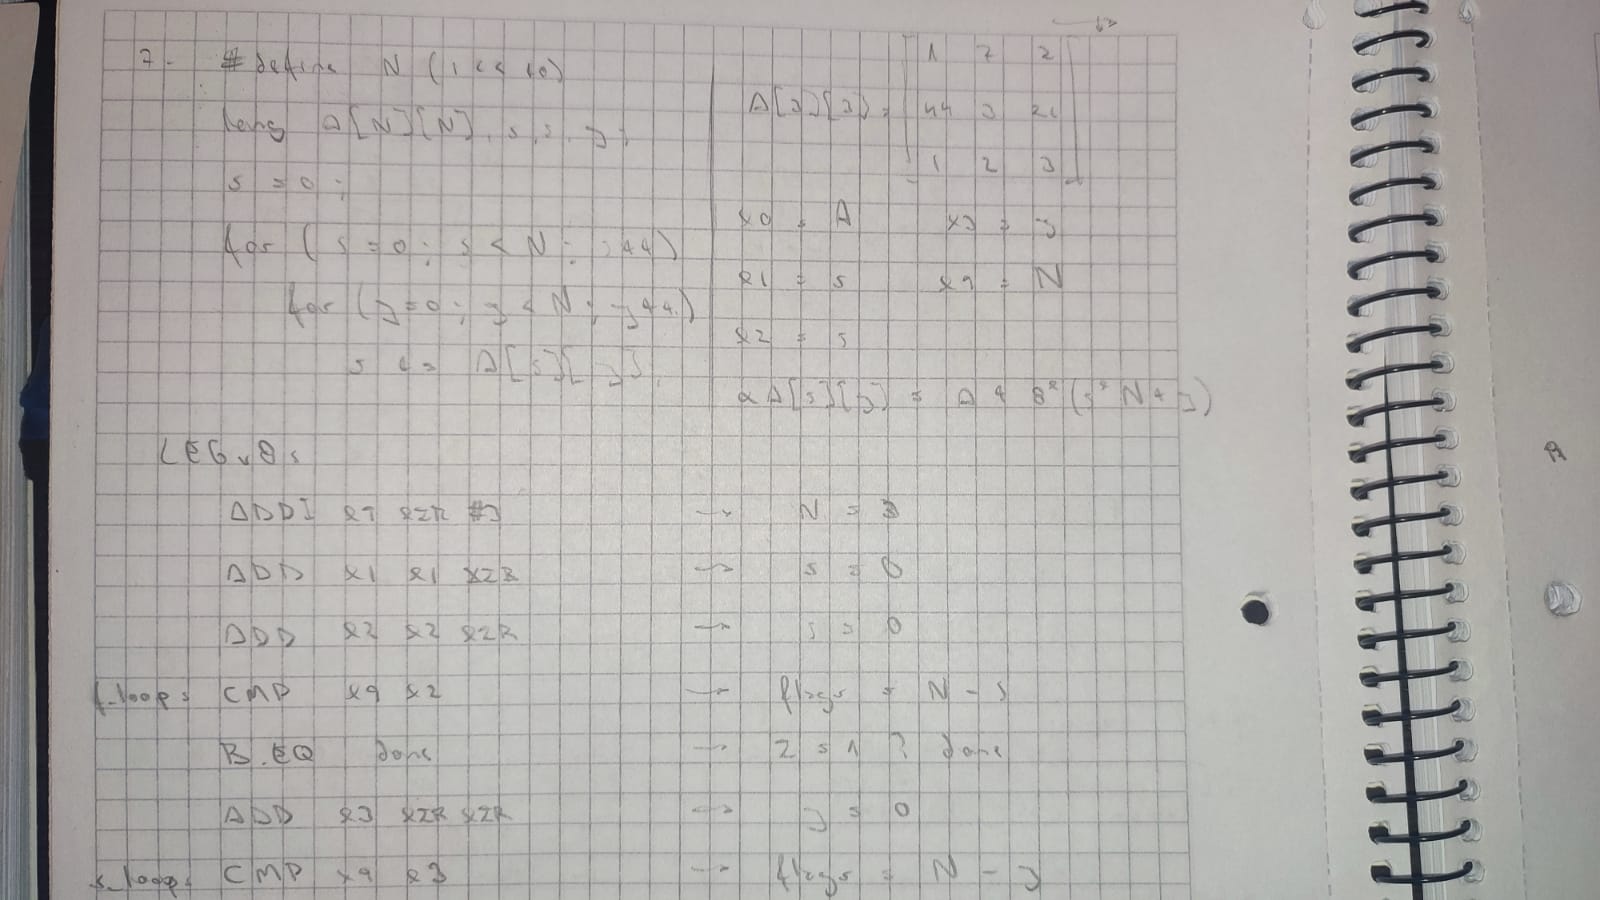 7. #define N (1<<10)
long A[N][N], s, i, j;
s = 0;
for (i = 0; i < N; i++)
for (j = 0; j < N; j++)
s += A[i][j];
1 7 2
A[3][3] = 44 3 21
1 2 3
X0 = A X3 = j
X1 = s X9 = N
X2 = i
&A[i][j] = A + 8*(i*N + j)
LEGv8:
ADDI X9 XZR #3 → N = 3
ADD X1 X1 XZR → s = 0
ADD X2 X2 XZR → i = 0
f_loop: CMP X9 X2 → flags = N - i
B.EQ done → Z = 1 ? done
ADD X3 XZR XZR → j = 0
s_loop: CMP X9 X3 → flags = N - j